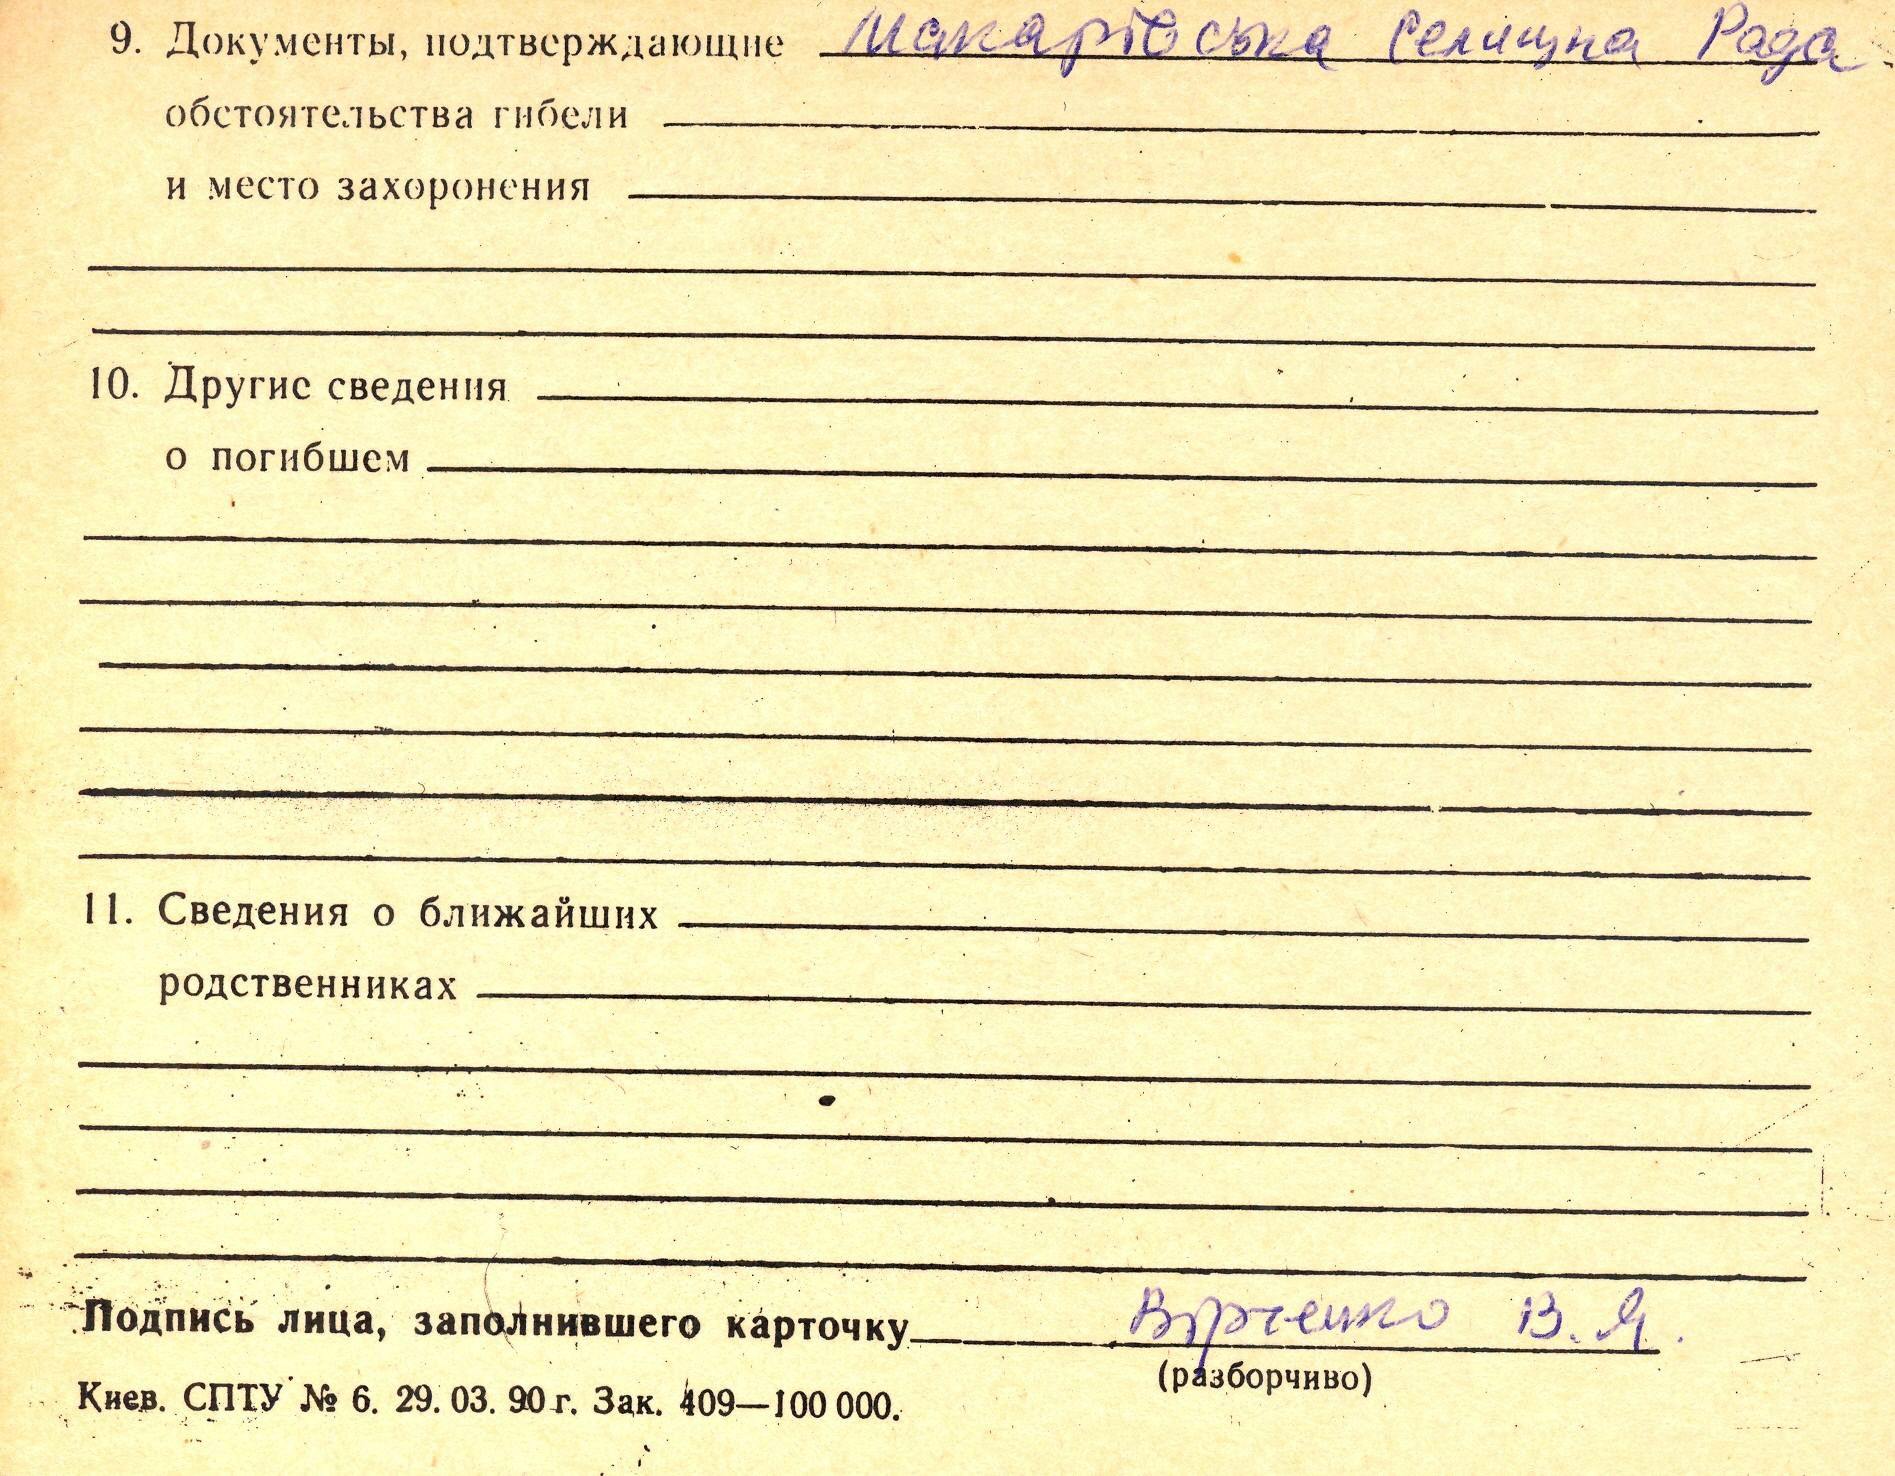 9. Документы, подтверждающие Макарівська Селищна Рада
обстоятельства гибели
и место захоронения
10. Другие сведения
о погибшем
11. Сведения о ближайших
родственниках
Подпись лица, заполнившего карточку В. Я.
(разборчиво)
Киев. СПТУ № 6. 29. 03. 90 г. Зак. 409—100 000.